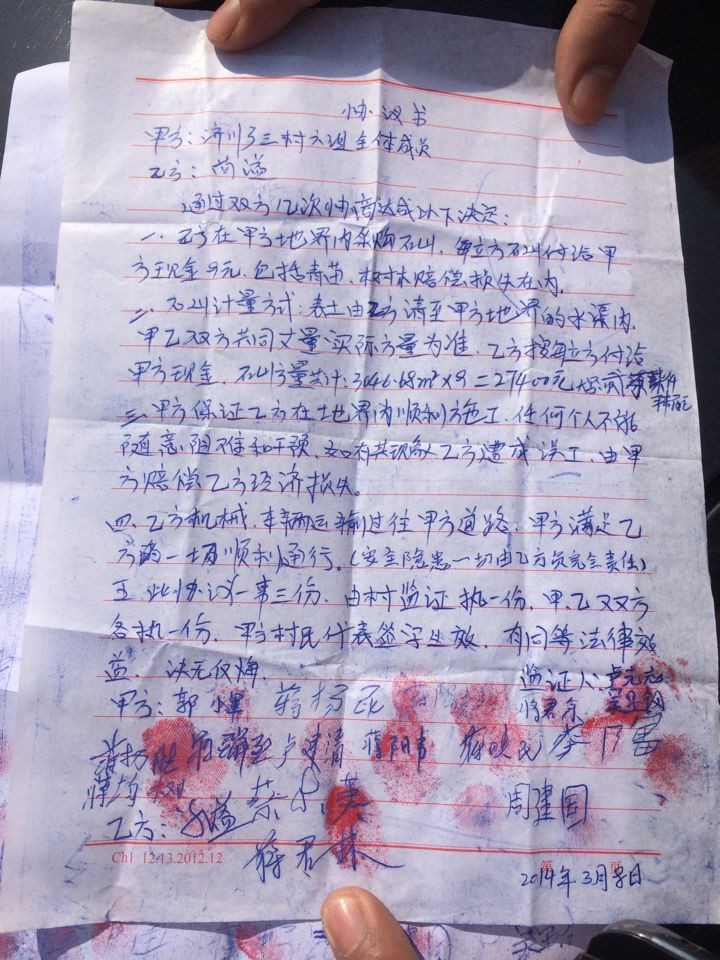 协议书
甲方：济川乡三村六组全体成员
乙方：苟溢
通过双方几次协商达成以下决定：
一、乙方在甲方地界内采购石山，每立方石山付给甲
方现金9元，包括青苗、树林赔偿损失在内。
二、石山计量方式：表土由乙方清至甲方地界的水渠内，
甲乙双方共同丈量实际方量为准，乙方按每立方付给
甲方现金，石山方量共计：3046.68m³×9=27400元
三、甲方保证乙方在土地界内顺利施工，任何个人不能
随意阻难和干预，如有其现象乙方造成误工，由甲
方赔偿乙方经济损失。
四、乙方机械、车辆运输过往甲方道路，甲方满足乙
方的一切顺利通行。（安全隐患一切由乙方负完全责任）
五、此协议一事三份，由村监证执一份，甲、乙双方
各执一份，甲方村民代表签字生效，有同等法律效
益，决无反悔。
监证人：
甲方：郭
乙方：
周建国
蒋君林
Ch1 12.13.2012.12
第 页
2014年3月 日